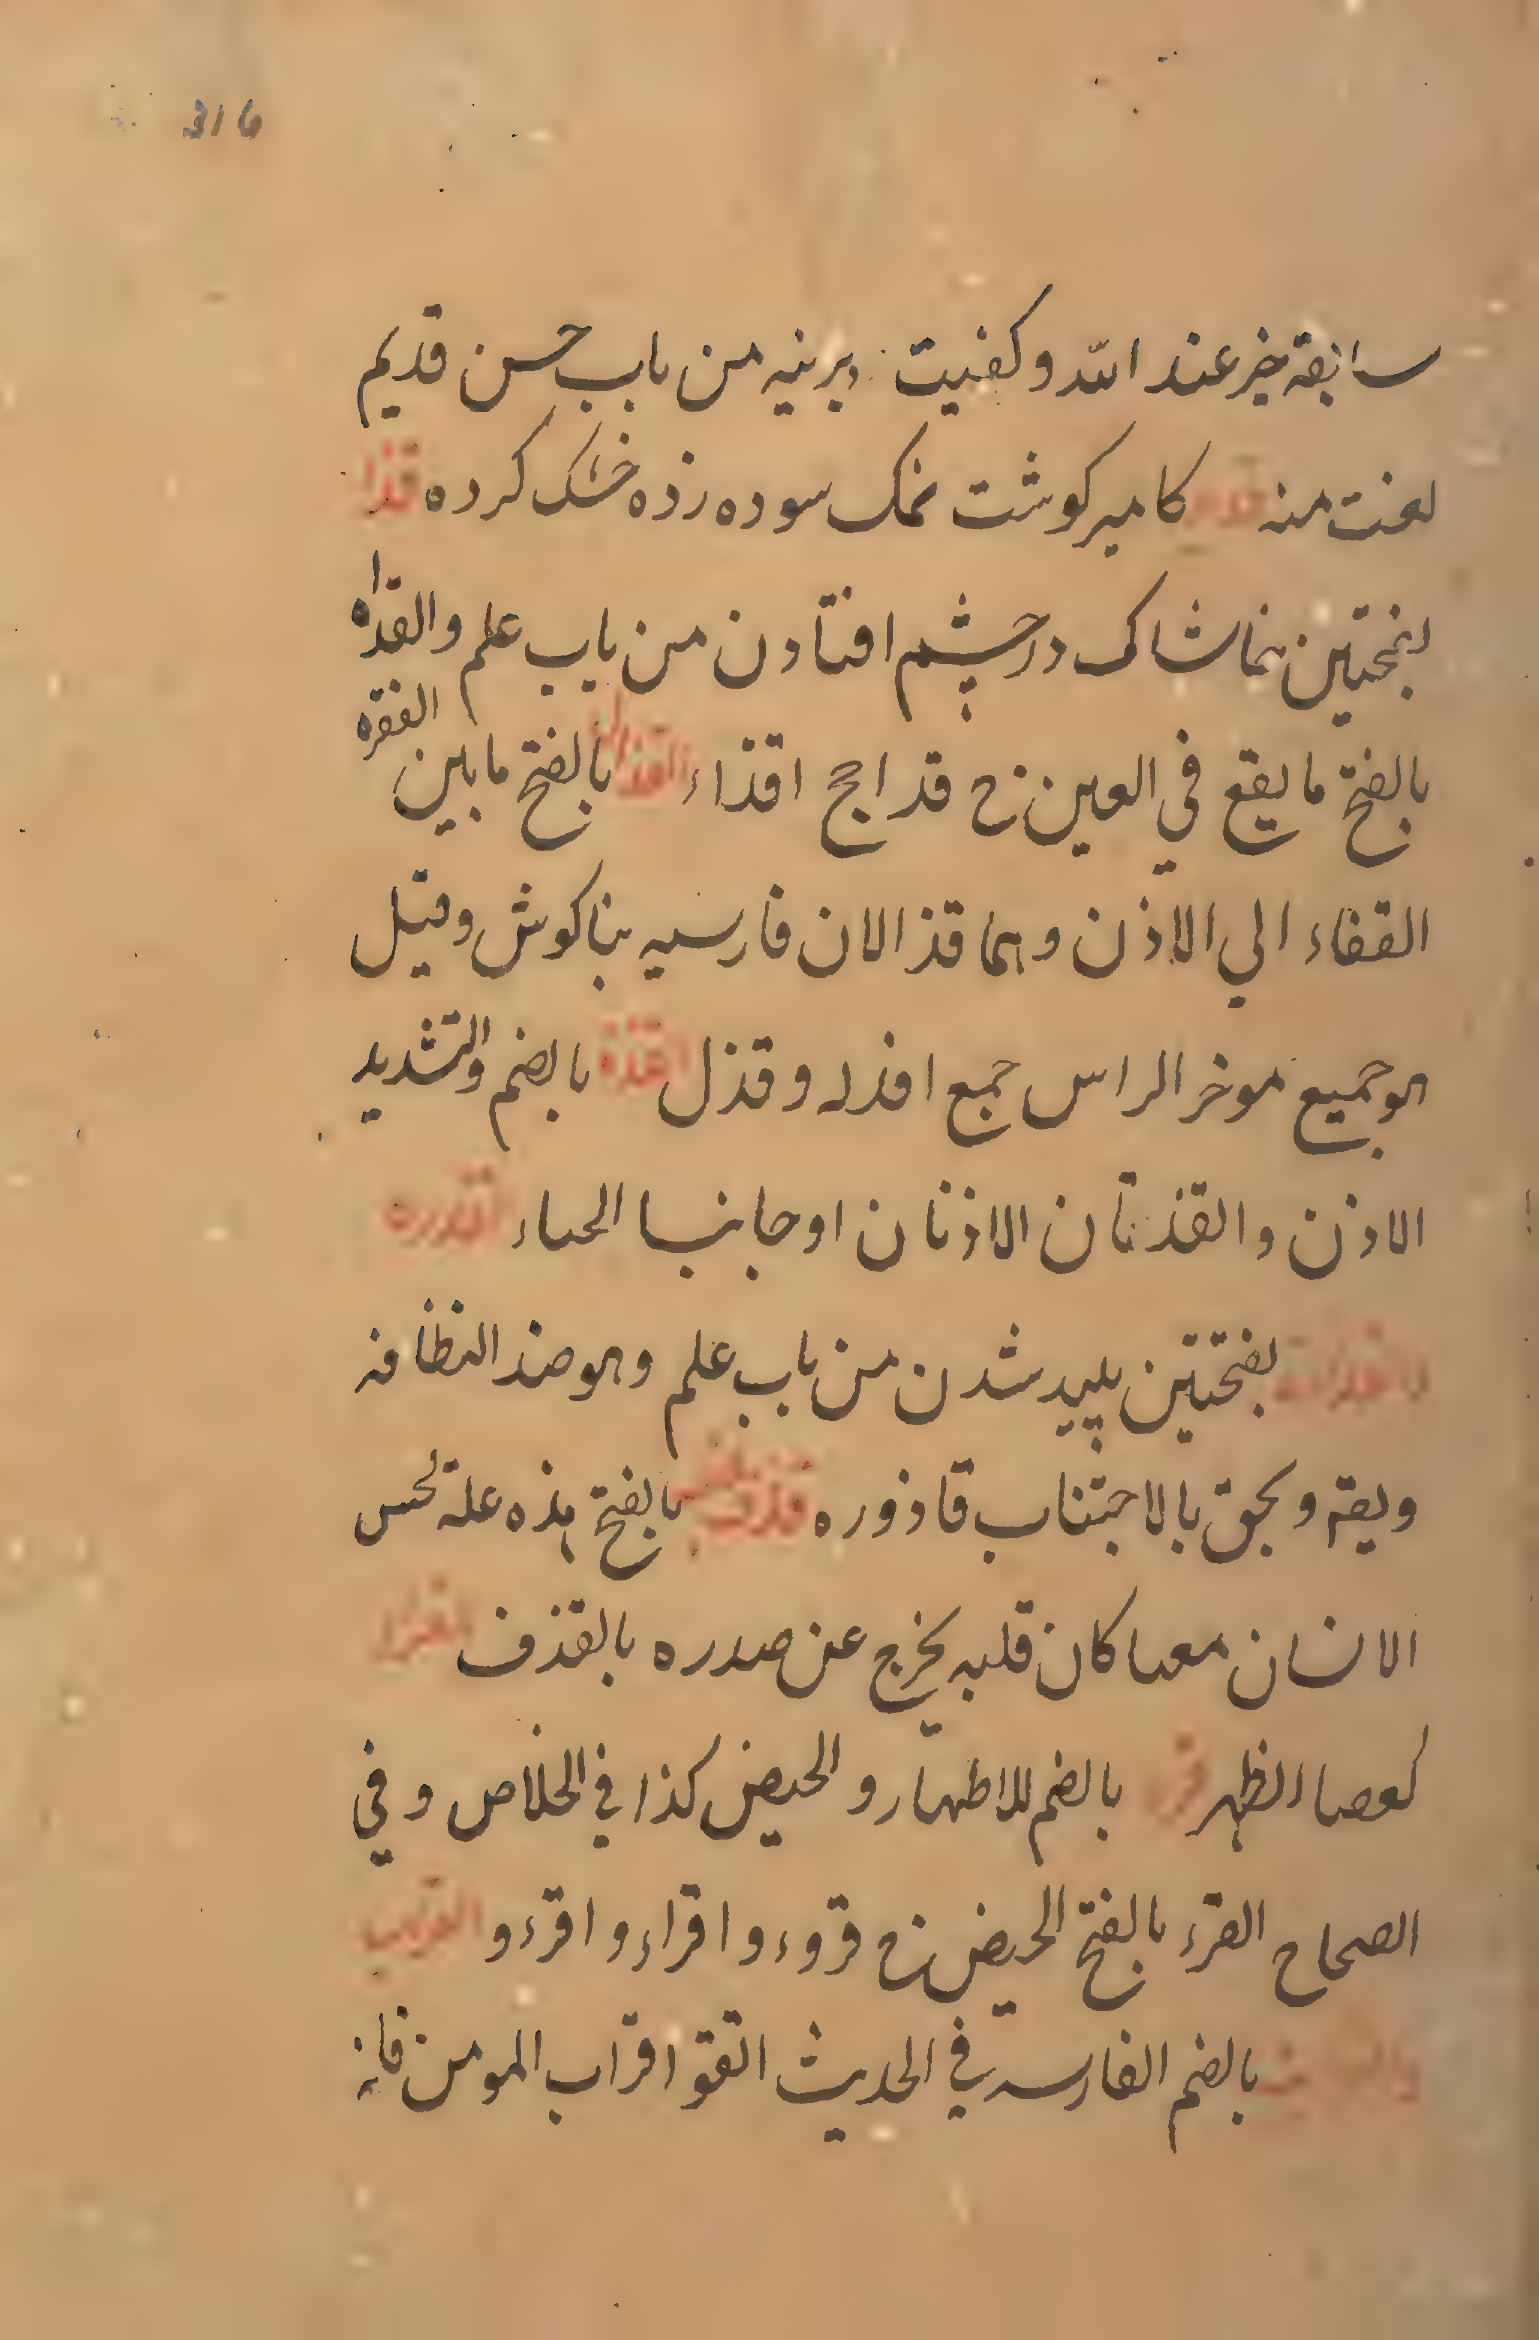 316
سابقة خير عند الله وكفنيت ديرينه من باب حسن قديم
لغت منه كامير كوشت نمك سوده زده خشك كرده قذا
بفتحتين خاشاك در چشم افتادن من باب علم والقذاه
بالفتح ما يقع في العين ح قذا جج اقذاء القذال بالفتح ما بين الفقره
القفاء الي الاذن وهما قذالان فارسيه بناكوش وقيل
هو جميع موخر الراس جمع اقذله وقذل القذه بالضم والتشديد
الاذن والقذتان الاذنان او جانبا الحياء القذره
بفتحتين پليد شدن من باب علم وهو ضد النظافه
ويقه ويحق بالاجتناب قاذوره قذف بالفتح هذه علة تحس
الانسان معها كان قلبه يخرج عن صدره بالقذف القرا
كعصا الظهر قرء بالضم للاطهار والحيض كذا في الخلاص وفي
الصحاح القرء بالفتح الحيض ح قروء واقراء واقرء و القراب
بالضم الفارسه في الحديث اتقو اقراب المومن فانه